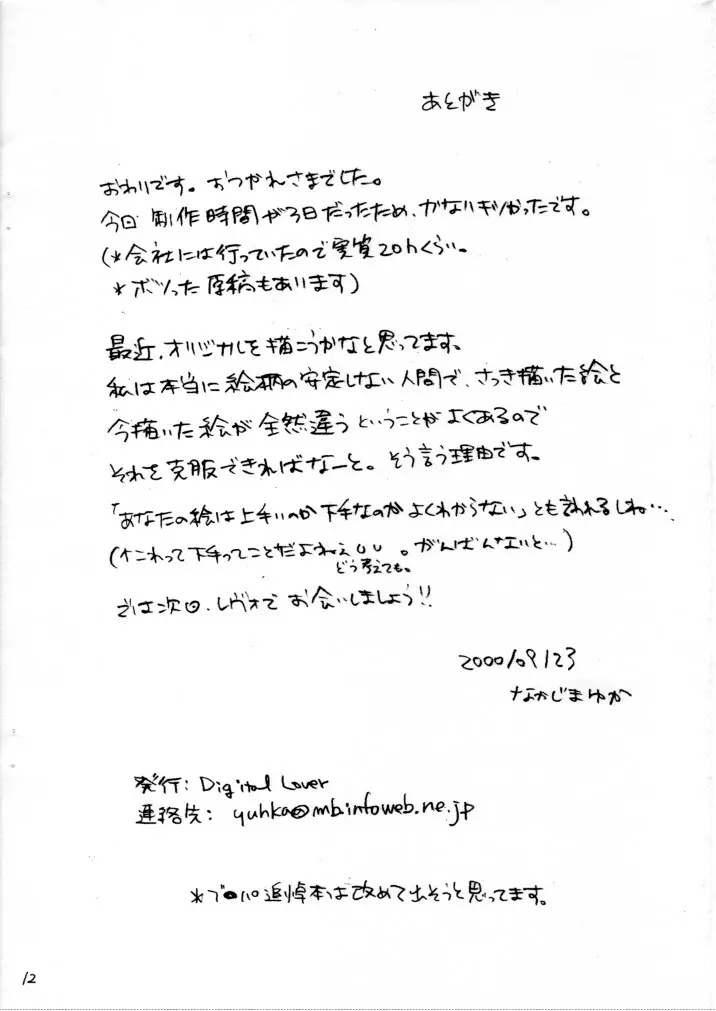 あとがき
おわりです。おつかれさまでした。
今回 制作時間が3日だったため、かなりギリだったです。
(*会社には行っていたので実質20hくらい。
*ボツった原稿もあります)
最近、オリジナルを描こうかなと思ってます。
私は本当に絵柄の安定しない人間で、さっき描いた絵と
今描いた絵が全然違うということがよくあるので
それを克服できればなーと。そう言う理由です。
「あなたの絵は上手いのか下手なのかよくわからない」とも言われるしね…
(イこれって下手ってことだよねぇUU。がんばんないと…)
どう考えても。
では次回、レヴォでお会いしましょう!!
2000/09/23
なかじまゆか
発行: Digital Lover
連絡先: yuhka@mb.infoweb.ne.jp
*プロパ追悼本は改めて出そうと思ってます。
12